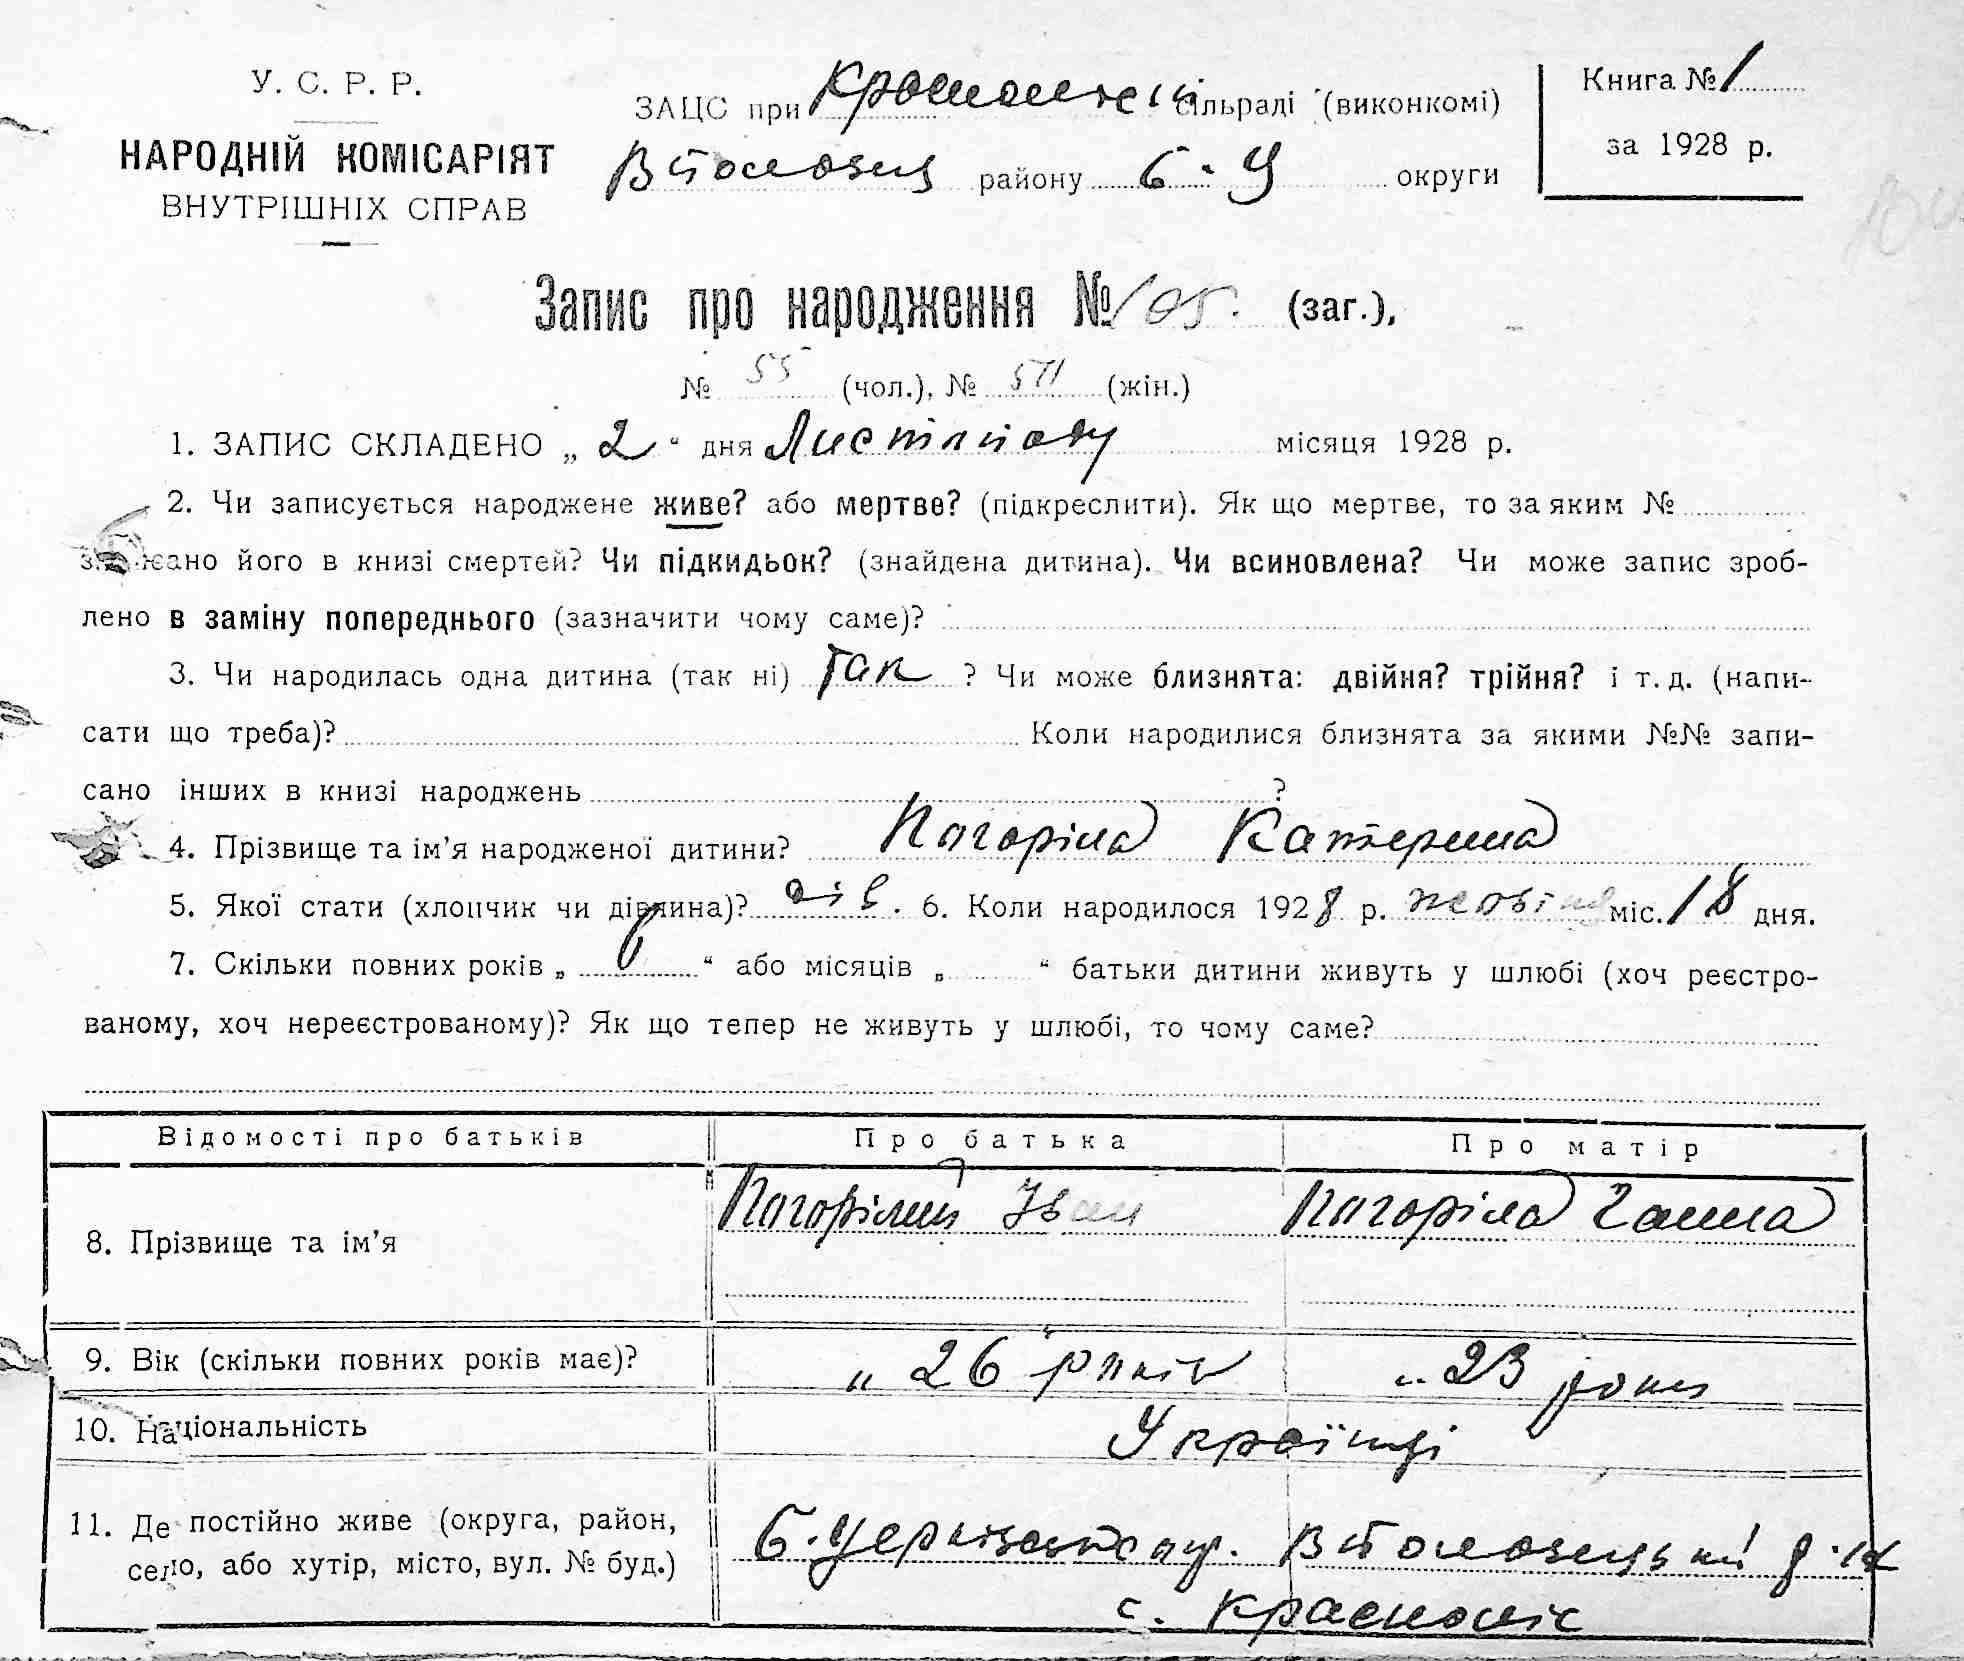 У. С. Р. Р.
НАРОДНІЙ КОМІСАРІЯТ
ВНУТРІШНІХ СПРАВ
ЗАЦС при сільраді (виконкомі)
району Б-Ц округи
Книга № 1
за 1928 р.
Запис про народження № 105. (заг.),
№ 55 (чол.), № (жін.)
1. ЗАПИС СКЛАДЕНО „ 2 “ дня Листопаду місяця 1928 р.
2. Чи записується народжене живе? або мертве? (підкреслити). Як що мертве, то за яким №
записано його в книзі смертей? Чи підкидьок? (знайдена дитина). Чи всиновлена? Чи може запис зроб-
лено в заміну попереднього (зазначити чому саме)?
3. Чи народилась одна дитина (так ні) Так ? Чи може близнята: двійня? трійня? і т. д. (напи-
сати що треба)? Коли народилися близнята за якими №№ запи-
сано інших в книзі народжень ?
4. Прізвище та ім’я народженої дитини? Погоріла Катерина
5. Якої стати (хлопчик чи дівчина)? дів. 6. Коли народилося 1928 р. жовтня міс. 18 дня.
7. Скільки повних років „ “ або місяців „ “ батьки дитини живуть у шлюбі (хоч реєстро-
ваному, хоч нереєстрованому)? Як що тепер не живуть у шлюбі, то чому саме?
Відомості про батьків Про батька Про матір
8. Прізвище та ім’я Погорілий Іван Погоріла Ганна
9. Вік (скільки повних років має)? „ 26 років „ 23 роки
10. Національність Українці
11. Де постійно живе (округа, район,
село, або хутір, місто, вул. № буд.)
Б. Церківської окр. р-н
с.